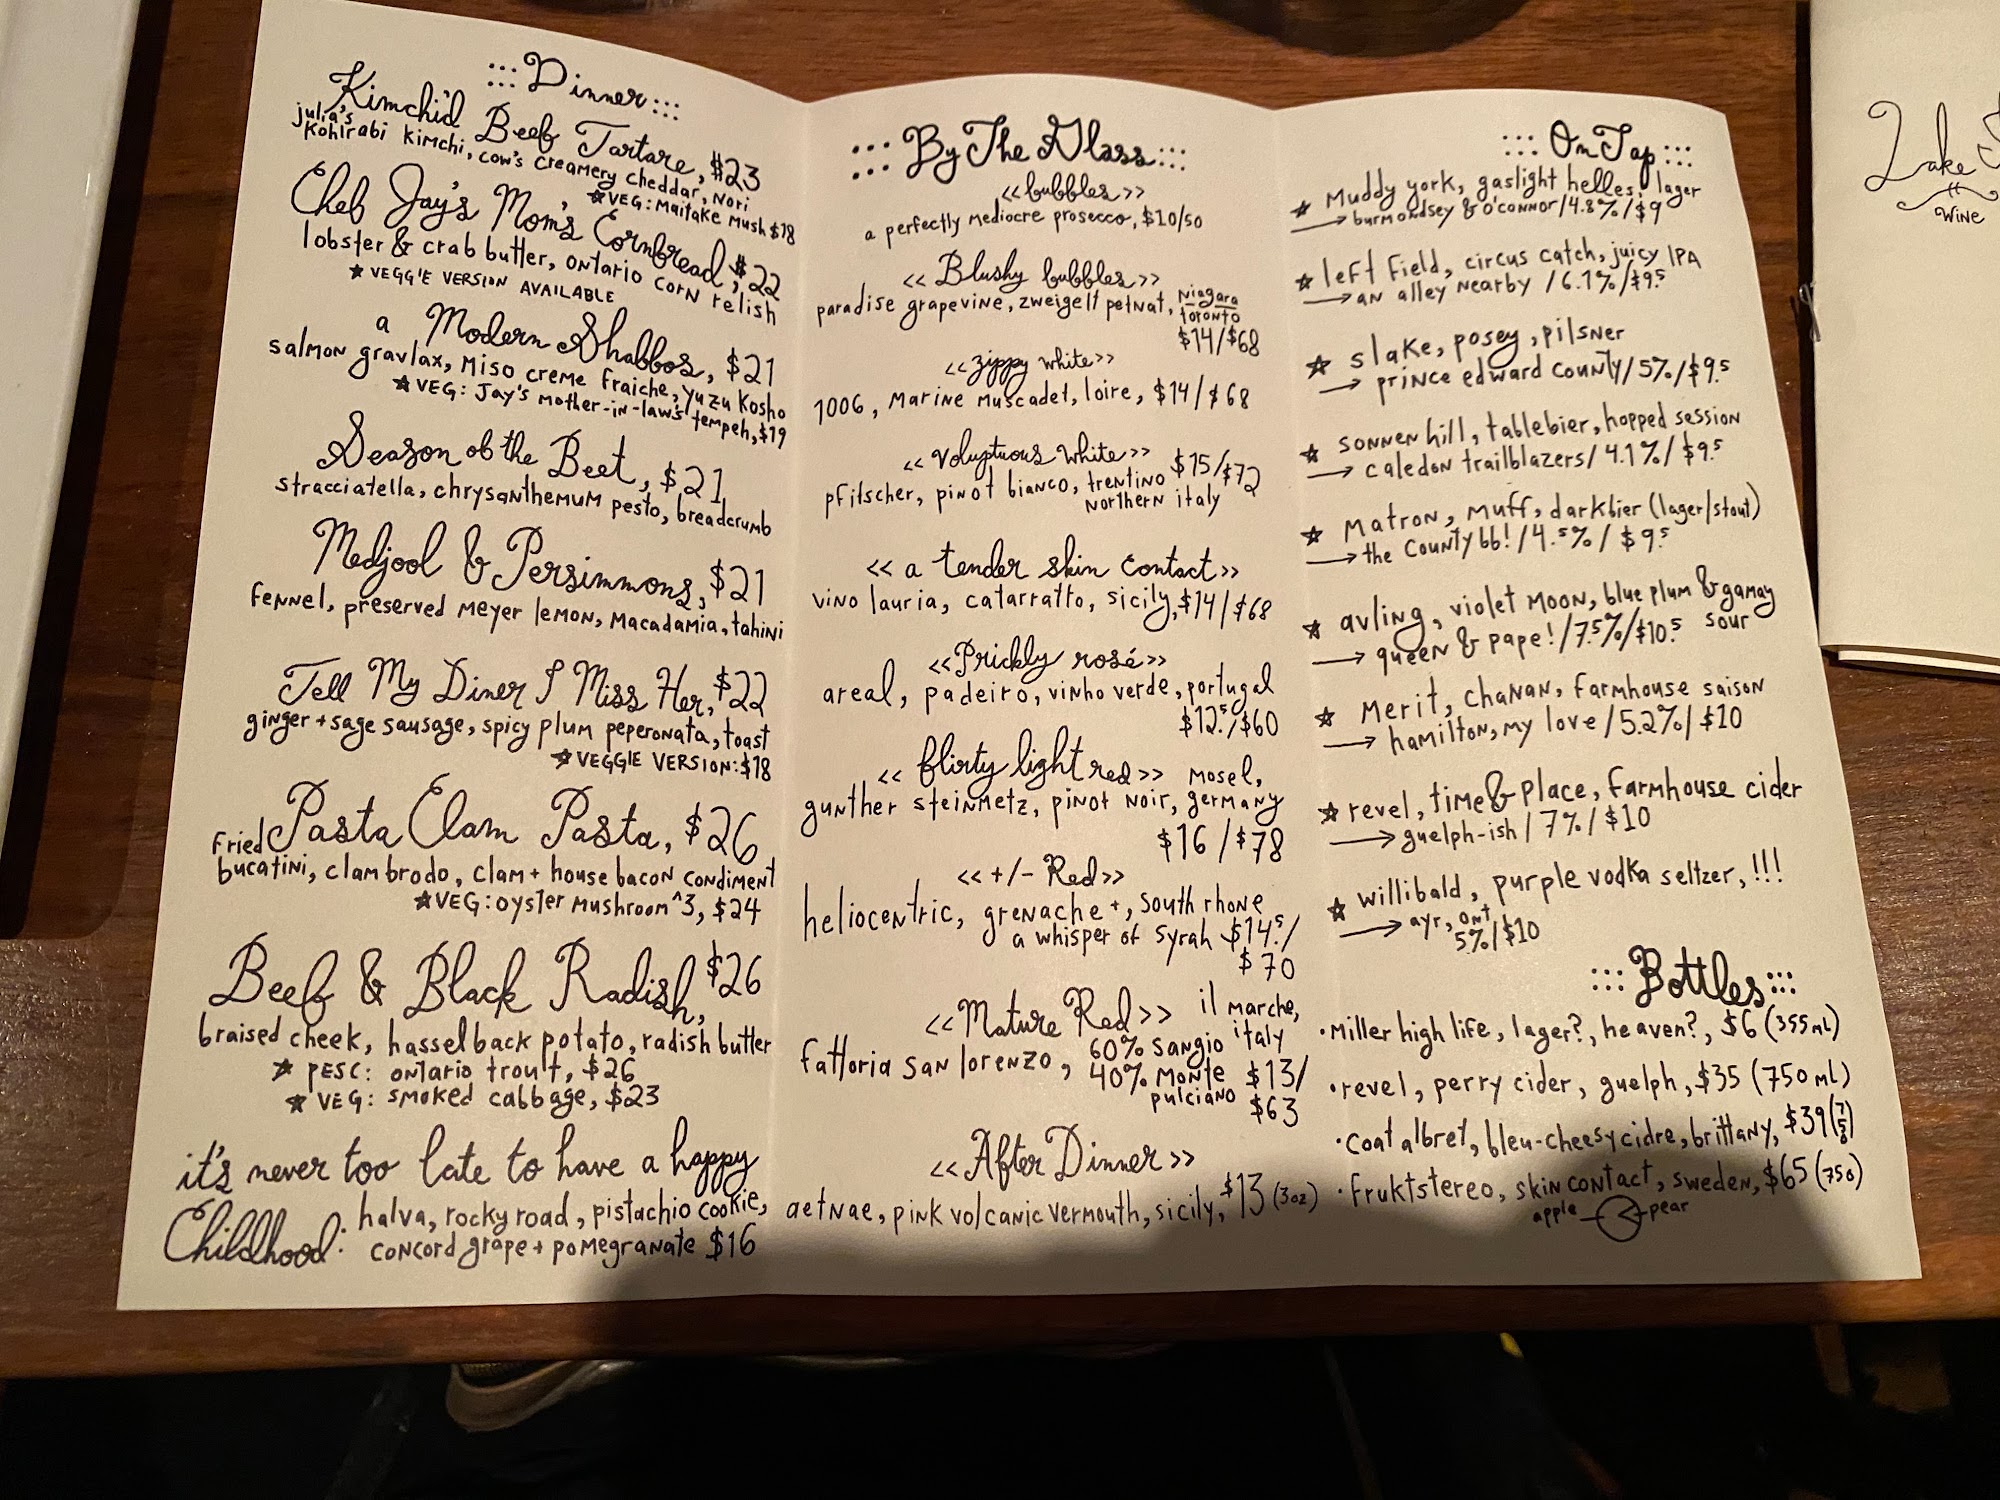 ::: Dinner :::
Kimchi'd Beef Tartare, $23
julia's kohlrabi kimchi, cow's creamery cheddar, nori
★ VEG: Maitake Mush $18
Chef Jay's Mom's Cornbread, $22
lobster & crab butter, ontario corn relish
★ VEGGIE VERSION AVAILABLE
a Modern Shabbos, $21
salmon gravlax, miso creme fraiche, yuzu kosho
★ VEG: Jay's mother-in-law's tempeh, $19
Season of the Beet, $21
stracciatella, chrysanthemum pesto, breadcrumb
Medjool & Persimmons, $21
fennel, preserved meyer lemon, macadamia, tahini
Tell My Diner I Miss Her, $22
ginger + sage sausage, spicy plum peperonata, toast
★ VEGGIE VERSION: $18
Pasta Clam Pasta, $26
Fried bucatini, clam brodo, clam + house bacon condiment
★ VEG: oyster mushroom^3, $24
Beef & Black Radish, $26
braised cheek, hasselback potato, radish butter
★ PESC: ontario trout, $26
★ VEG: smoked cabbage, $23
it's never too late to have a happy
Childhood: halva, rocky road, pistachio cookie,
concord grape + pomegranate $16
::: By The Glass :::
<< bubbles >>
a perfectly mediocre prosecco, $10/50
<< Blushy bubbles >>
paradise grapevine, zweigelt petnat, niagara toronto
$14/$68
<< zippy white >>
1006, marine muscadet, loire, $14/$68
<< Voluptuous White >> $15/$72
pfitscher, pinot bianco, trentino
northern italy
<< a tender skin contact >>
vino lauria, catarratto, sicily, $14/$68
<< Prickly rosé >>
areal, padeiro, vinho verde, portugal
$12.5/$60
<< flirty light red >> mosel,
gunther steinmetz, pinot noir, germany
$16/$78
<< +/- Red >>
heliocentric, grenache +, south rhone
a whisper of syrah $14.5/
$70
<< Mature Red >> il marche, italy
fattoria san lorenzo, 60% sangio
40% monte pulciano $13/
$63
<< After Dinner >>
aetnae, pink volcanic vermouth, sicily, $13 (3oz)
::: On Tap :::
★ Muddy york, gaslight helles, lager
→ burmondsey & o'connor/4.8%/$9
★ left field, circus catch, juicy IPA
→ an alley nearby /6.7%/$9.5
★ slake, posey, pilsner
→ prince edward county/5%/$9.5
★ sonnen hill, tablebier, hopped session
→ caledon trailblazers/4.1%/$9.5
★ matron, muff, darkbier (lager/stout)
→ the county bb!/4.5%/$9.5
★ avling, violet moon, blue plum & gamay sour
→ queen & pape!/7.5%/$10.5
★ Merit, chanan, farmhouse saison
→ hamilton, my love/5.2%/$10
★ revel, time & place, farmhouse cider
→ guelph-ish/7%/$10
★ willibald, purple vodka seltzer, !!!
→ ayr, ont
5%/$10
::: Bottles :::
· miller high life, lager?, heaven?, $6 (355ml)
· revel, perry cider, guelph, $35 (750 ml)
· coat albret, bleu-cheesy cidre, brittany, $39 (750)
· fruktstereo, skin contact, sweden, $65 (750)
apple pear
Lake
Wine